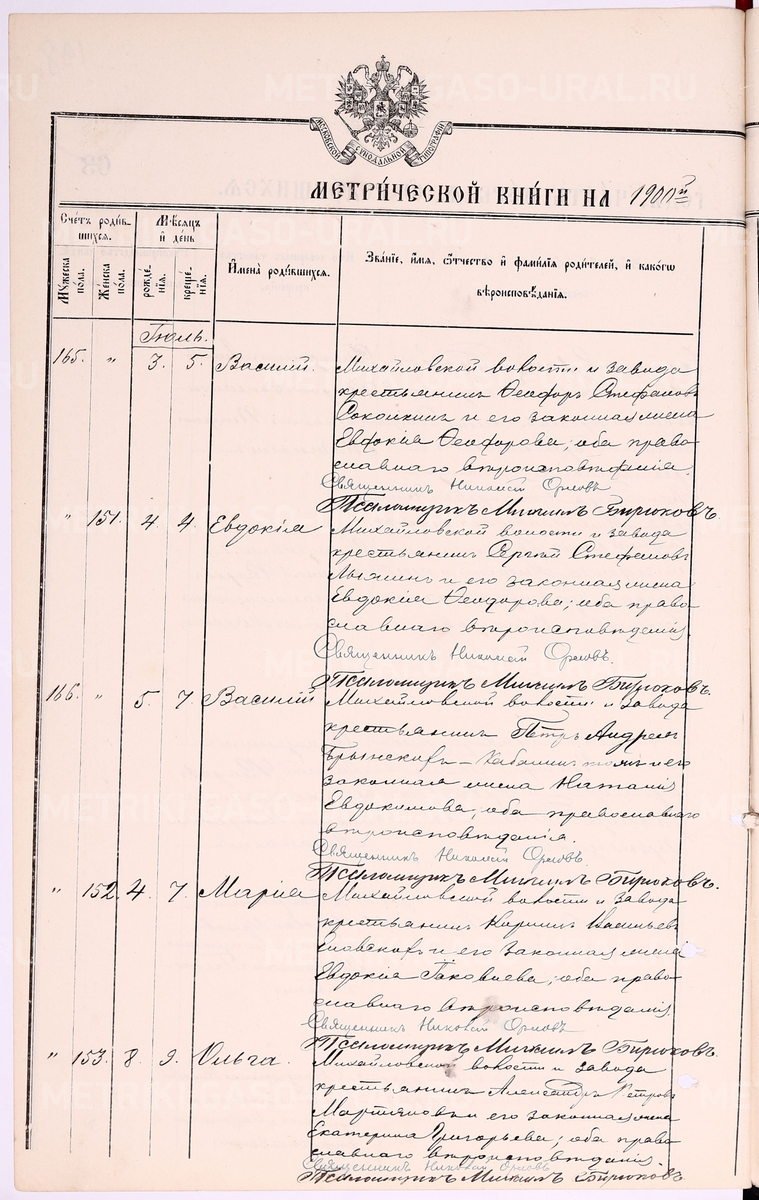 МОСКОВСКОЙ СѴНОДАЛЬНОЙ ТИПОГРАФІИ
МЕТРИ́ЧЕСКОЙ КНИ́ГИ НА 1900й
Сче́тъ роди́в-
шихся.
Мѣ́сяцъ
и҆ де́нь
И҆мена̀ роди́вшихся.
Зва́нїе, и҆́мя, ѻ҆́тчество и҆ фами́лїя роди́телей, и҆ како́гѡ
вѣроисповѣ́данїя.
Мꙋ́жеска
по́ла.
Же́нска
по́ла.
рожде́-
нїя.
креще́-
нїя.
Іюль.
165. " 3. 5. Василій. Михайловской волости и завода
крестьянинъ Ѳеодоръ Стефановъ
и его законная жена
Евдокія Ѳеодорова; оба право-
славнаго вѣроисповѣданія.
Священникъ Николай Орловъ
Псаломщикъ Михаилъ Бирюковъ.
" 151. 4. 4. Евдокія Михайловской волости и завода
крестьянинъ Сергій Стефановъ
и его законная жена
Евдокія Ѳеодорова; оба право-
славнаго вѣроисповѣданія.
Священникъ Николай Орловъ.
Псаломщикъ Михаилъ Бирюковъ.
166. " 5. 7. Василій Михайловской волости и завода
крестьянинъ Петръ Андреевъ
и его
законная жена Наталія
Евдокимова, оба православнаго
вѣроисповѣданія.
Священникъ Николай Орловъ.
Псаломщикъ Михаилъ Бирюковъ.
" 152. 4. 7. Марія Михайловской волости и завода
крестьянинъ Кириллъ Васильевъ
и его законная жена
Евдокія Іаковлева; оба право-
славнаго вѣроисповѣданія
Священникъ Николай Орловъ
Псаломщикъ Михаилъ Бирюковъ.
" 153. 8. 9. Ольга. Михайловской волости и завода
крестьянинъ Александръ Петровъ
Мартяновъ и его законная жена
Екатерина Григорьева; оба право-
славнаго вѣроисповѣданія.
Священникъ Николай Орловъ
Псаломщикъ Михаилъ Бирюковъ.
METRIKI.GASO-URAL.RU